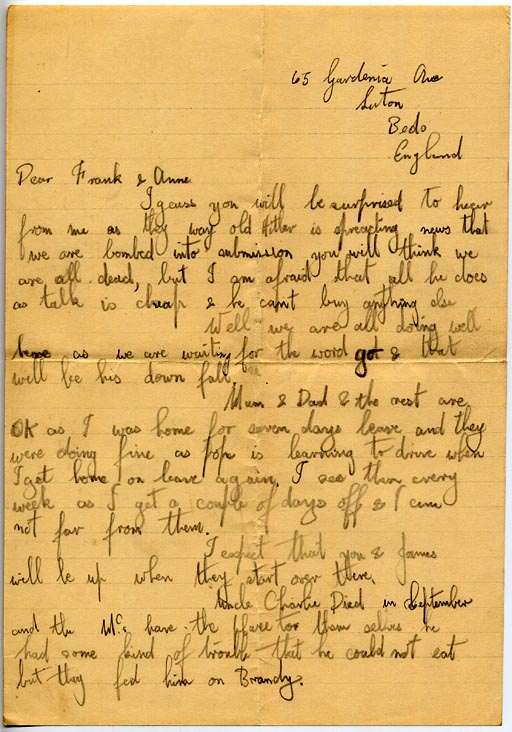 65 Gardenia Ave
Luton
Beds
England
Dear Frank & Anne
I guess you will be surprised to hear
from me as they way old Hitler is spreading news that
we are bombed into submission you will think we
are all dead, but I am afraid that all he does
as talk is cheap & he cant buy anything else
Well we are all doing well
here as we are waiting for the word got & that
will be his down fall.
Mum & Dad & the rest are
OK as I was home for seven days leave and they
were doing fine as pop is learning to drive when
I get home on leave again. I see them every
week as I get a couple of days off & I am
not far from them.
I expect that you & James
will be up when they start over there.
Uncle Charlie Died in September
and the Mc have the place to them selves he
had some kind of trouble that he could not eat
but they fed him on Brandy.